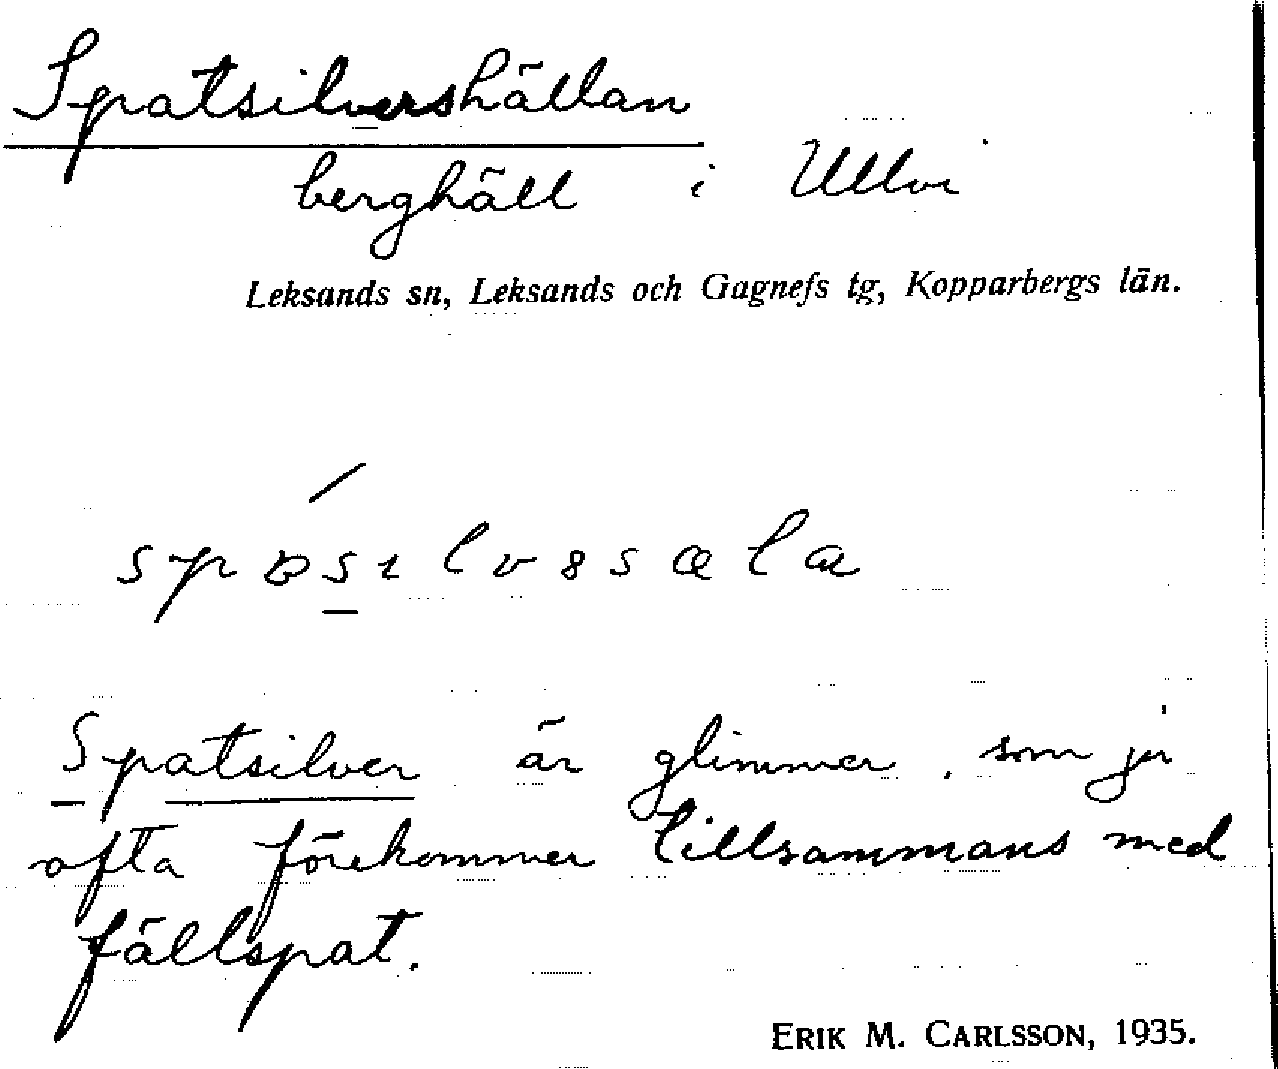 Spatsilvershällan
berghäll i Ullvi
Leksands sn, Leksands och Gagnefs tg, Kopparbergs län.
Spatsilver är glimmer, som ju
ofta förekommer tillsammans med
fällspat.
ERIK M. CARLSSON, 1935.